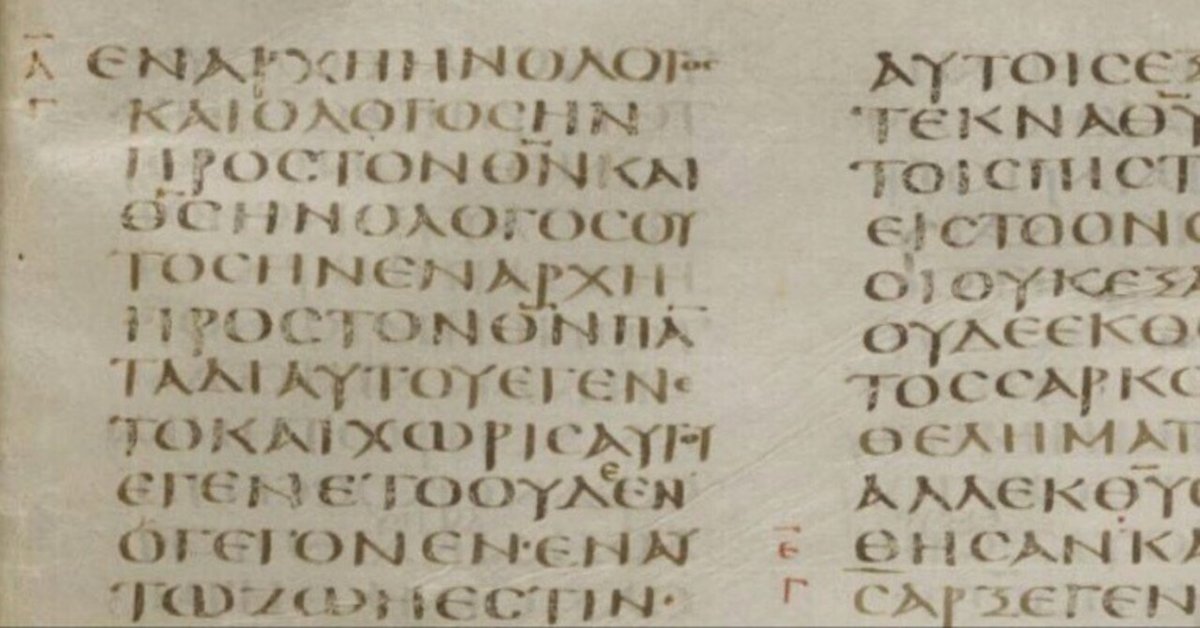 Α̅
Γ
ΕΝΑΡΧΗΗΝΟΛΟΓΟϹ
ΚΑΙΟΛΟΓΟϹΗΝ
ΠΡΟϹΤΟΝΘ̅Ν̅ΚΑΙ
Θ̅Ϲ̅ΗΝΟΛΟΓΟϹΟΥ
ΤΟϹΗΝΕΝΑΡΧΗ
ΠΡΟϹΤΟΝΘ̅Ν̅ΠΑ̅
ΤΑΔΙΑΥΤΟΥΕΓΕΝΕ
ΤΟΚΑΙΧΩΡΙϹΑΥΤΟΥ
ΕΓΕΝΕΤΟΟΥΔΕΕΝ
ΟΓΕΓΟΝΕΝ·ΕΝΑΥ
ΤΩΖΩΗΕϹΤΙΝ·
ΑΥΤΟΙϹΕΞ
ΤΕΚΝΑΘ̅Υ̅
ΤΟΙϹΠΙϹΤ
ΕΙϹΤΟΟΝΟ
ΟΙΟΥΚΕΞΑ
ΟΥΔΕΕΚΘ
ΤΟϹϹΑΡΚΟ
ΘΕΛΗΜΑΤ
ΑΛΛΕΚΘ̅Υ̅
Ε̅
Γ
ΘΗϹΑΝΚΑ
ϹΑΡΞΕΓΕΝ